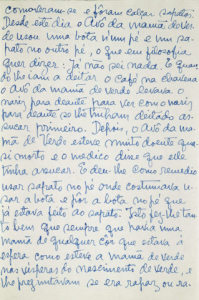 comoveram-se e foram calçar sapatos.
Desde este dia o Avô da mamã de Ver-
de usou uma bota num pé e um sa-
pato no outro pé, o que em filosofia
quer dizer: Já não sei nada. E quan-
do lhe iam a deitar o Café na chávena
o Avô da mamã de Verde levava o
nariz para deante para ver com o nariz
para deante se lhe tinham deitado as-
sucar primeiro. Depois, o Avô da ma-
mã de Verde esteve muito doente quasi
morto e o medico disse que elle
tinha assucar. E deu-lhe como remedio
usar sapato no pé onde costumava u-
sar a bota e pôr a bota no pé que
já estava feito ao sapato. Isto fez-lhe tan-
to bem que sempre que havia uma
mamã de qualquer côr que estava á
espera como esteve a mamã de Verde
nas vesperas do nascimento de Verde, e
lhe preguntavam se era rapaz, ou ra-